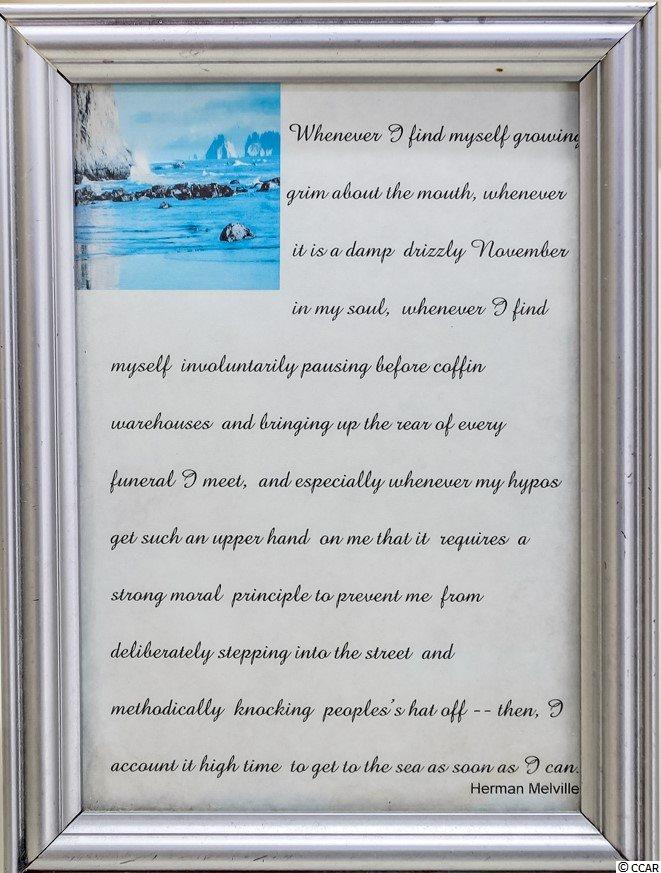 Whenever I find myself growing
grim about the mouth, whenever
it is a damp drizzly November
in my soul, whenever I find
myself involuntarily pausing before coffin
warehouses and bringing up the rear of every
funeral I meet, and especially whenever my hypos
get such an upper hand on me that it requires a
strong moral principle to prevent me from
deliberately stepping into the street and
methodically knocking peoples's hat off -- then, I
account it high time to get to the sea as soon as I can.
Herman Melville
© CCAR